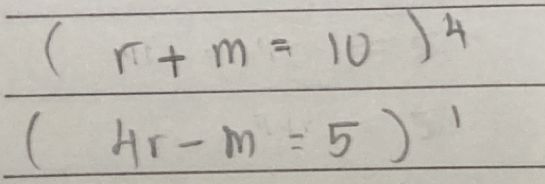 ( r + m = 10 ) 4
( 4r - m = 5 ) 1